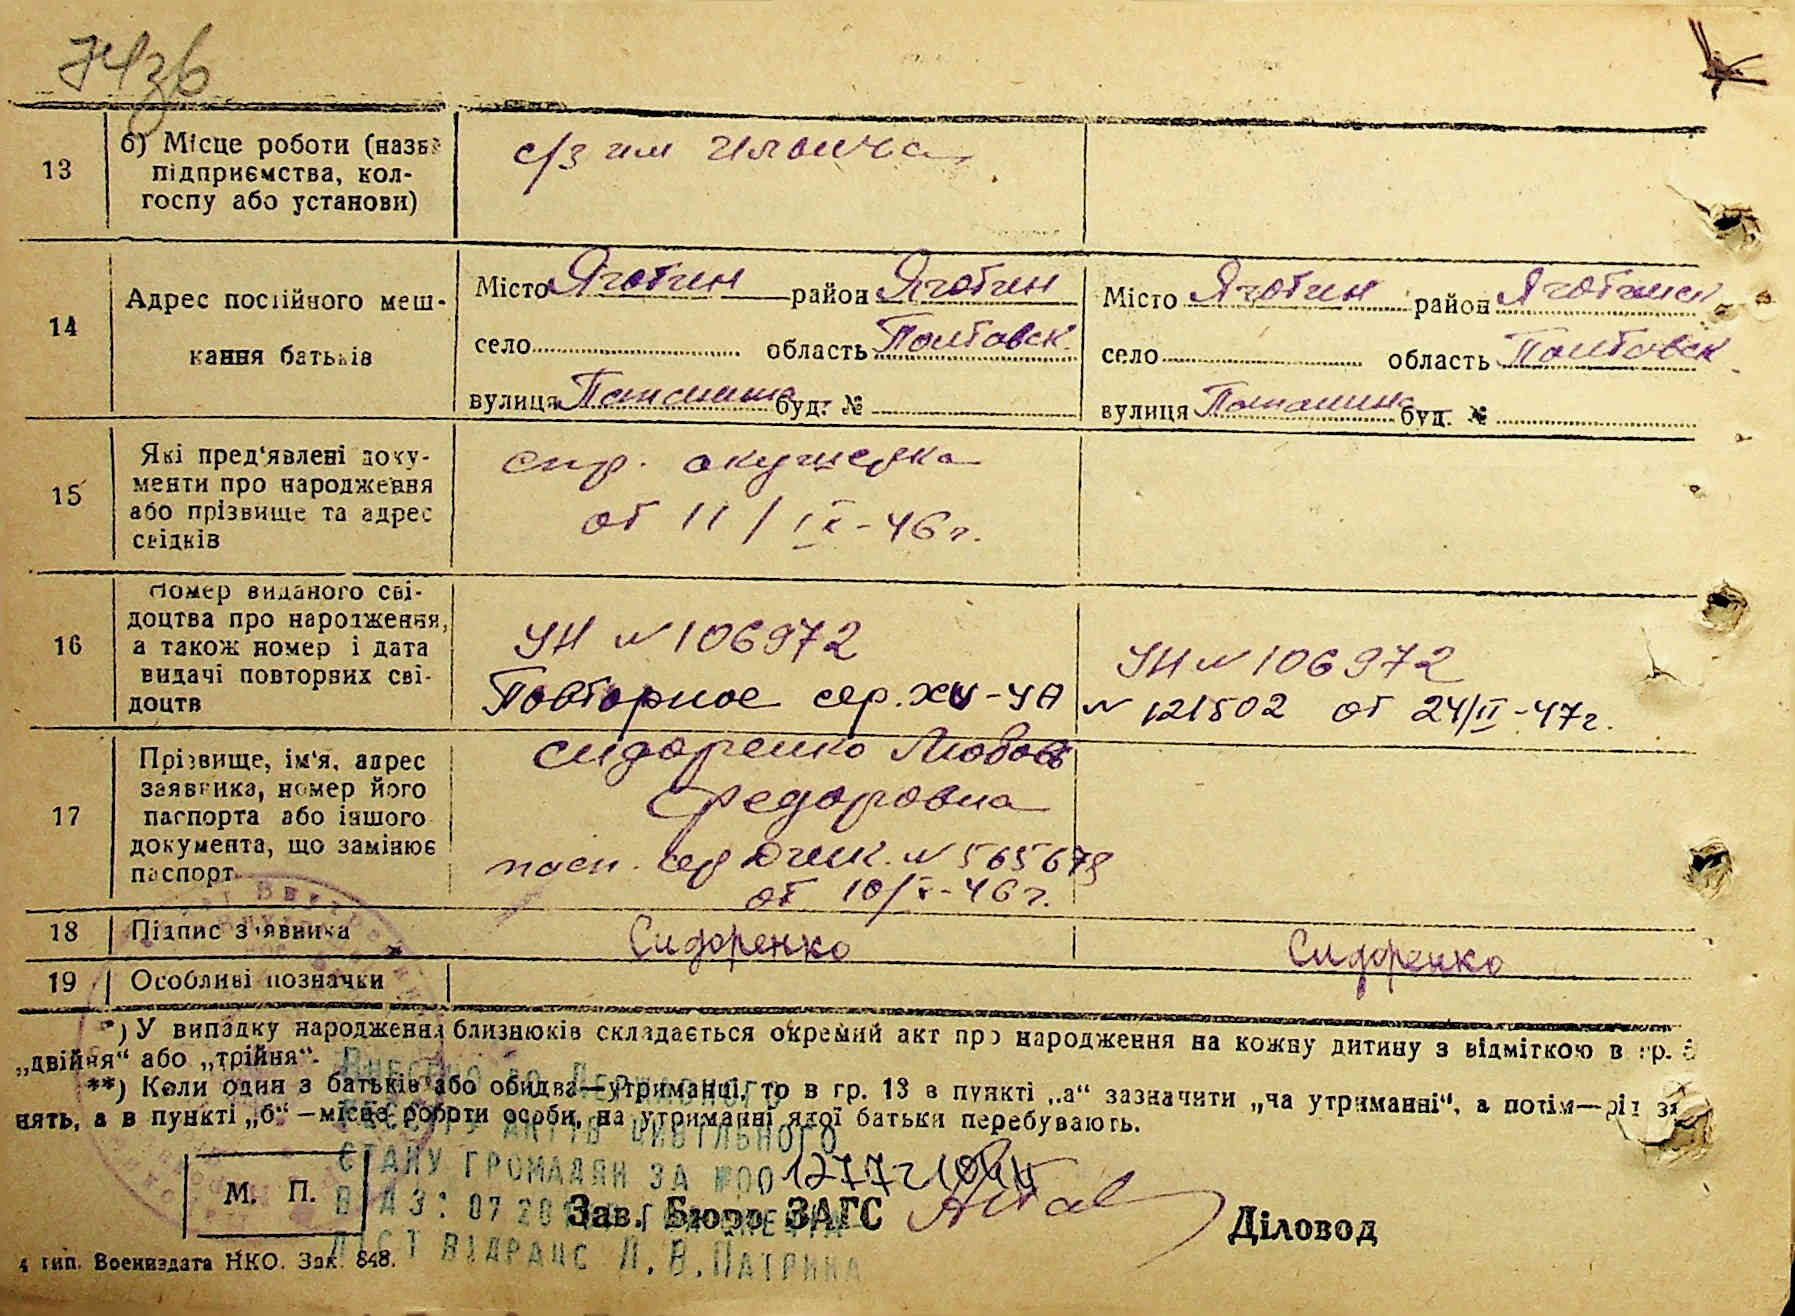 13
б) Місце роботи (назва
підприємства, кол-
госпу або установи)
с/з им Ильича
14
Адрес постійного меш-
кання батьків
Місто Яготин район Яготин
село область Полтавск.
вулиця буд. №
Місто Яготин район Яготинск
село область Полтавск
вулиця буд. №
15
Які пред'явлені доку-
менти про народження
або прізвище та адрес
свідків
спр. акушерка
от 11/IX-46 г.
16
Номер виданого сві-
доцтва про народження,
а також номер і дата
видачі повторних сві-
доцтв
УН № 106972
Повторное сер. XV-УА
УН № 106972
№ 121502 от 24/II-47г.
17
Прізвище, ім'я, адрес
заявника, номер його
паспорта або іншого
документа, що замінює
паспорт
Сидоренко Любовь
Федоровна
пасп. сер № 565678
от 10/-46 г.
18
Підпис заявника
Сидоренко
Сидоренко
19
Особливі позначки
*) У випадку народження близнюків складається окремий акт про народження на кожну дитину з відміткою в гр.
„двійня“ або „трійня“.
**) Коли один з батьків або обидва—утриманці, то в гр. 13 в пункті „а“ зазначити „на утриманні“, а потім—рід за
нять, а в пункті „б“—місце роботи особи, на утриманні якої батьки перебувають.
Внесено до Державного
реєстру актів цивільного
стану громадян за №00
М. П.
Зав. Бюро ЗАГС
Діловод
від 07 20
ліст відрацс Л. В. Патрина
4 тип. Воениздата НКО. Зак. 848.